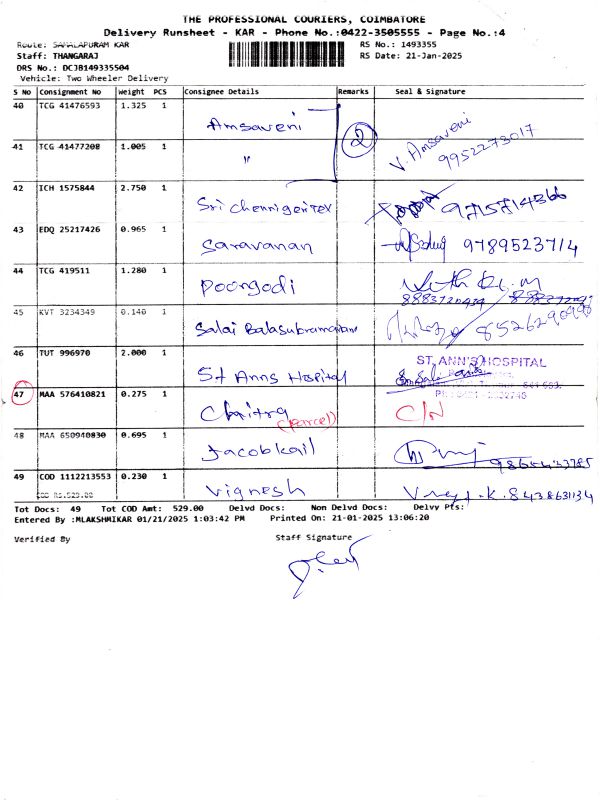 THE PROFESSIONAL COURIERS, COIMBATORE
Delivery Runsheet - KAR - Phone No.:0422-3505555 - Page No.:4
Route: SAMALAPURAM KAR
RS No.: 1493355
Staff: THANGARAJ
RS Date: 21-Jan-2025
DRS No.: DCJB149335504
Vehicle: Two Wheeler Delivery
S No Consignment No Weight PCS Consignee Details Remarks Seal & Signature
40 TCG 41476593 1.325 1 Amsaveni
2 V. Amsaveni 9952273017
41 TCG 41477208 1.005 1 "
42 ICH 1575844 2.750 1 Sri Chennigeri Tex 9715714366
43 EDQ 25217426 0.965 1 Saravanan 9789523714
44 TCG 419511 1.280 1 Poongodi
8883720939
45 KVT 3234349 0.140 1 Salai Balasubramaniam 8526290998
46 TUT 996970 2.000 1 St Anns Hospital ST. ANN'S HOSPITAL
47 MAA 576410821 0.275 1 Chitra (parcel) C/N
48 MAA 650940830 0.695 1 Jacobkail 9865433785
49 COD 1112213553 0.230 1 Vignesh 8438631134
COD Rs.529.00
Tot Docs: 49 Tot COD Amt: 529.00 Delvd Docs: Non Delvd Docs: Delvy Pts:
Entered By :MLAKSHMIKAR 01/21/2025 1:03:42 PM Printed On: 21-01-2025 13:06:20
Verified By Staff Signature